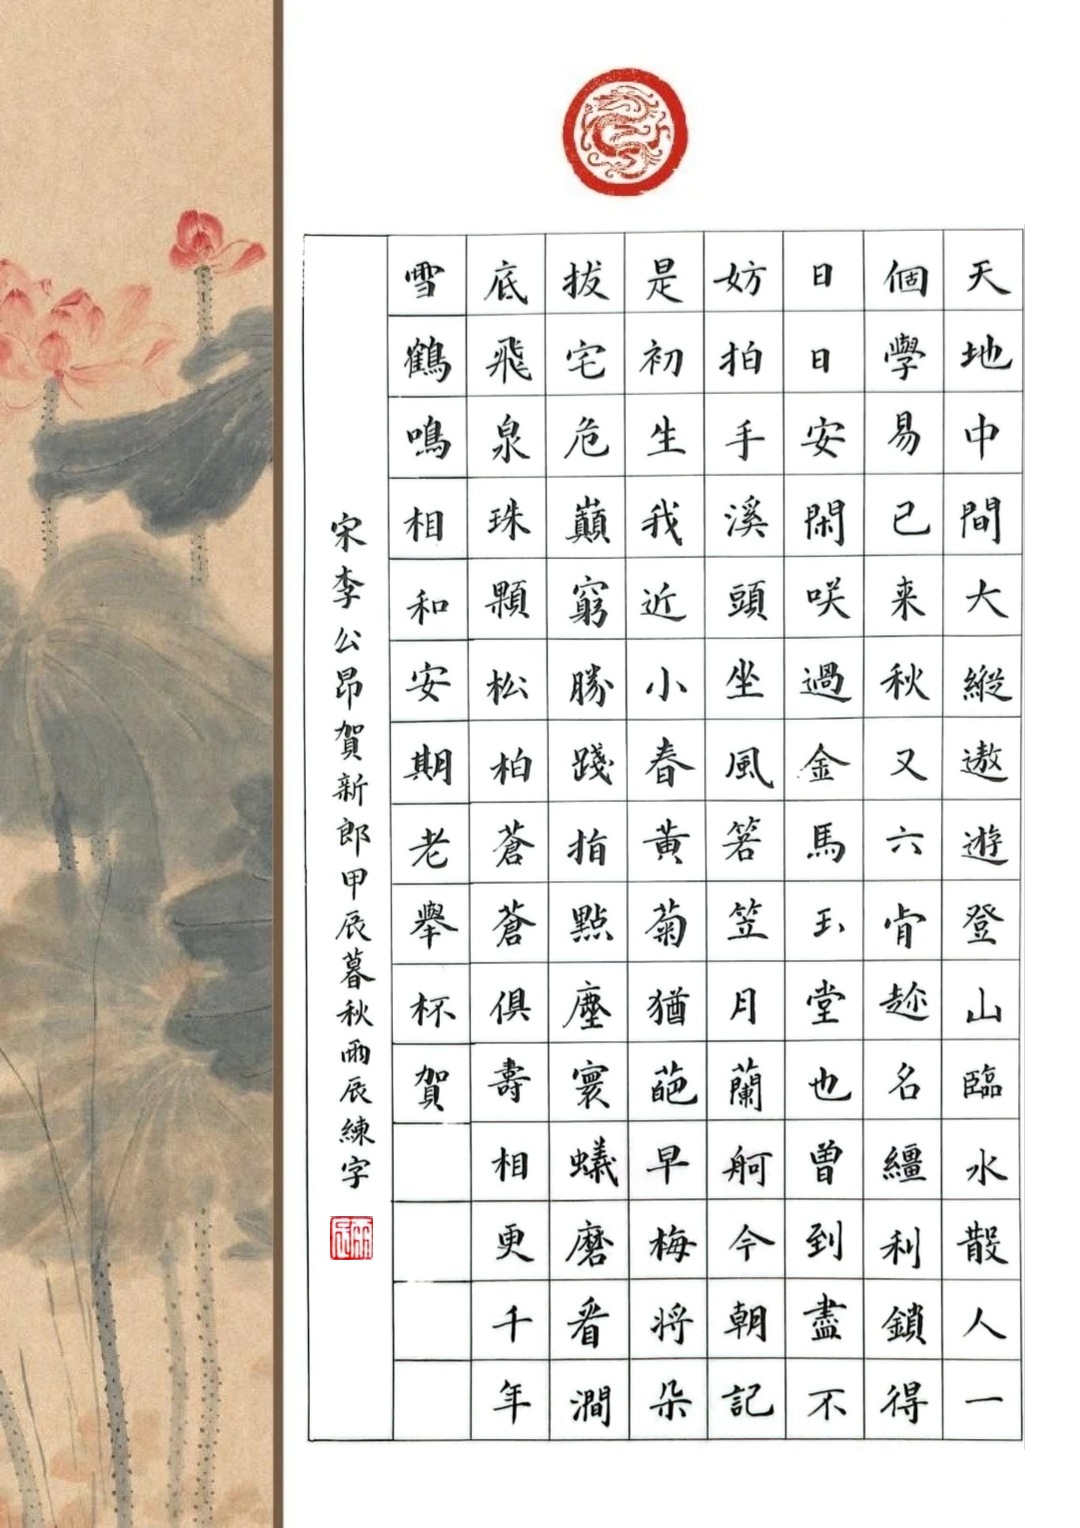 天地中間大縱遨遊登山臨水散人一
個學易已来秋又六肯趂名繮利鎖得
日日安閑咲過金馬玉堂也曽到盡不
妨拍手溪頭坐風箬笠月蘭舸今朝記
是初生我近小春黄菊猶葩早梅將朵
拔宅危巔窮勝踐指點塵寰蟻磨看澗
底飛泉珠顆松柏蒼蒼俱壽相更千年
雪鶴鳴相和安期老舉杯賀
宋李公昂賀新郎甲辰暮秋雨辰練字
雨辰